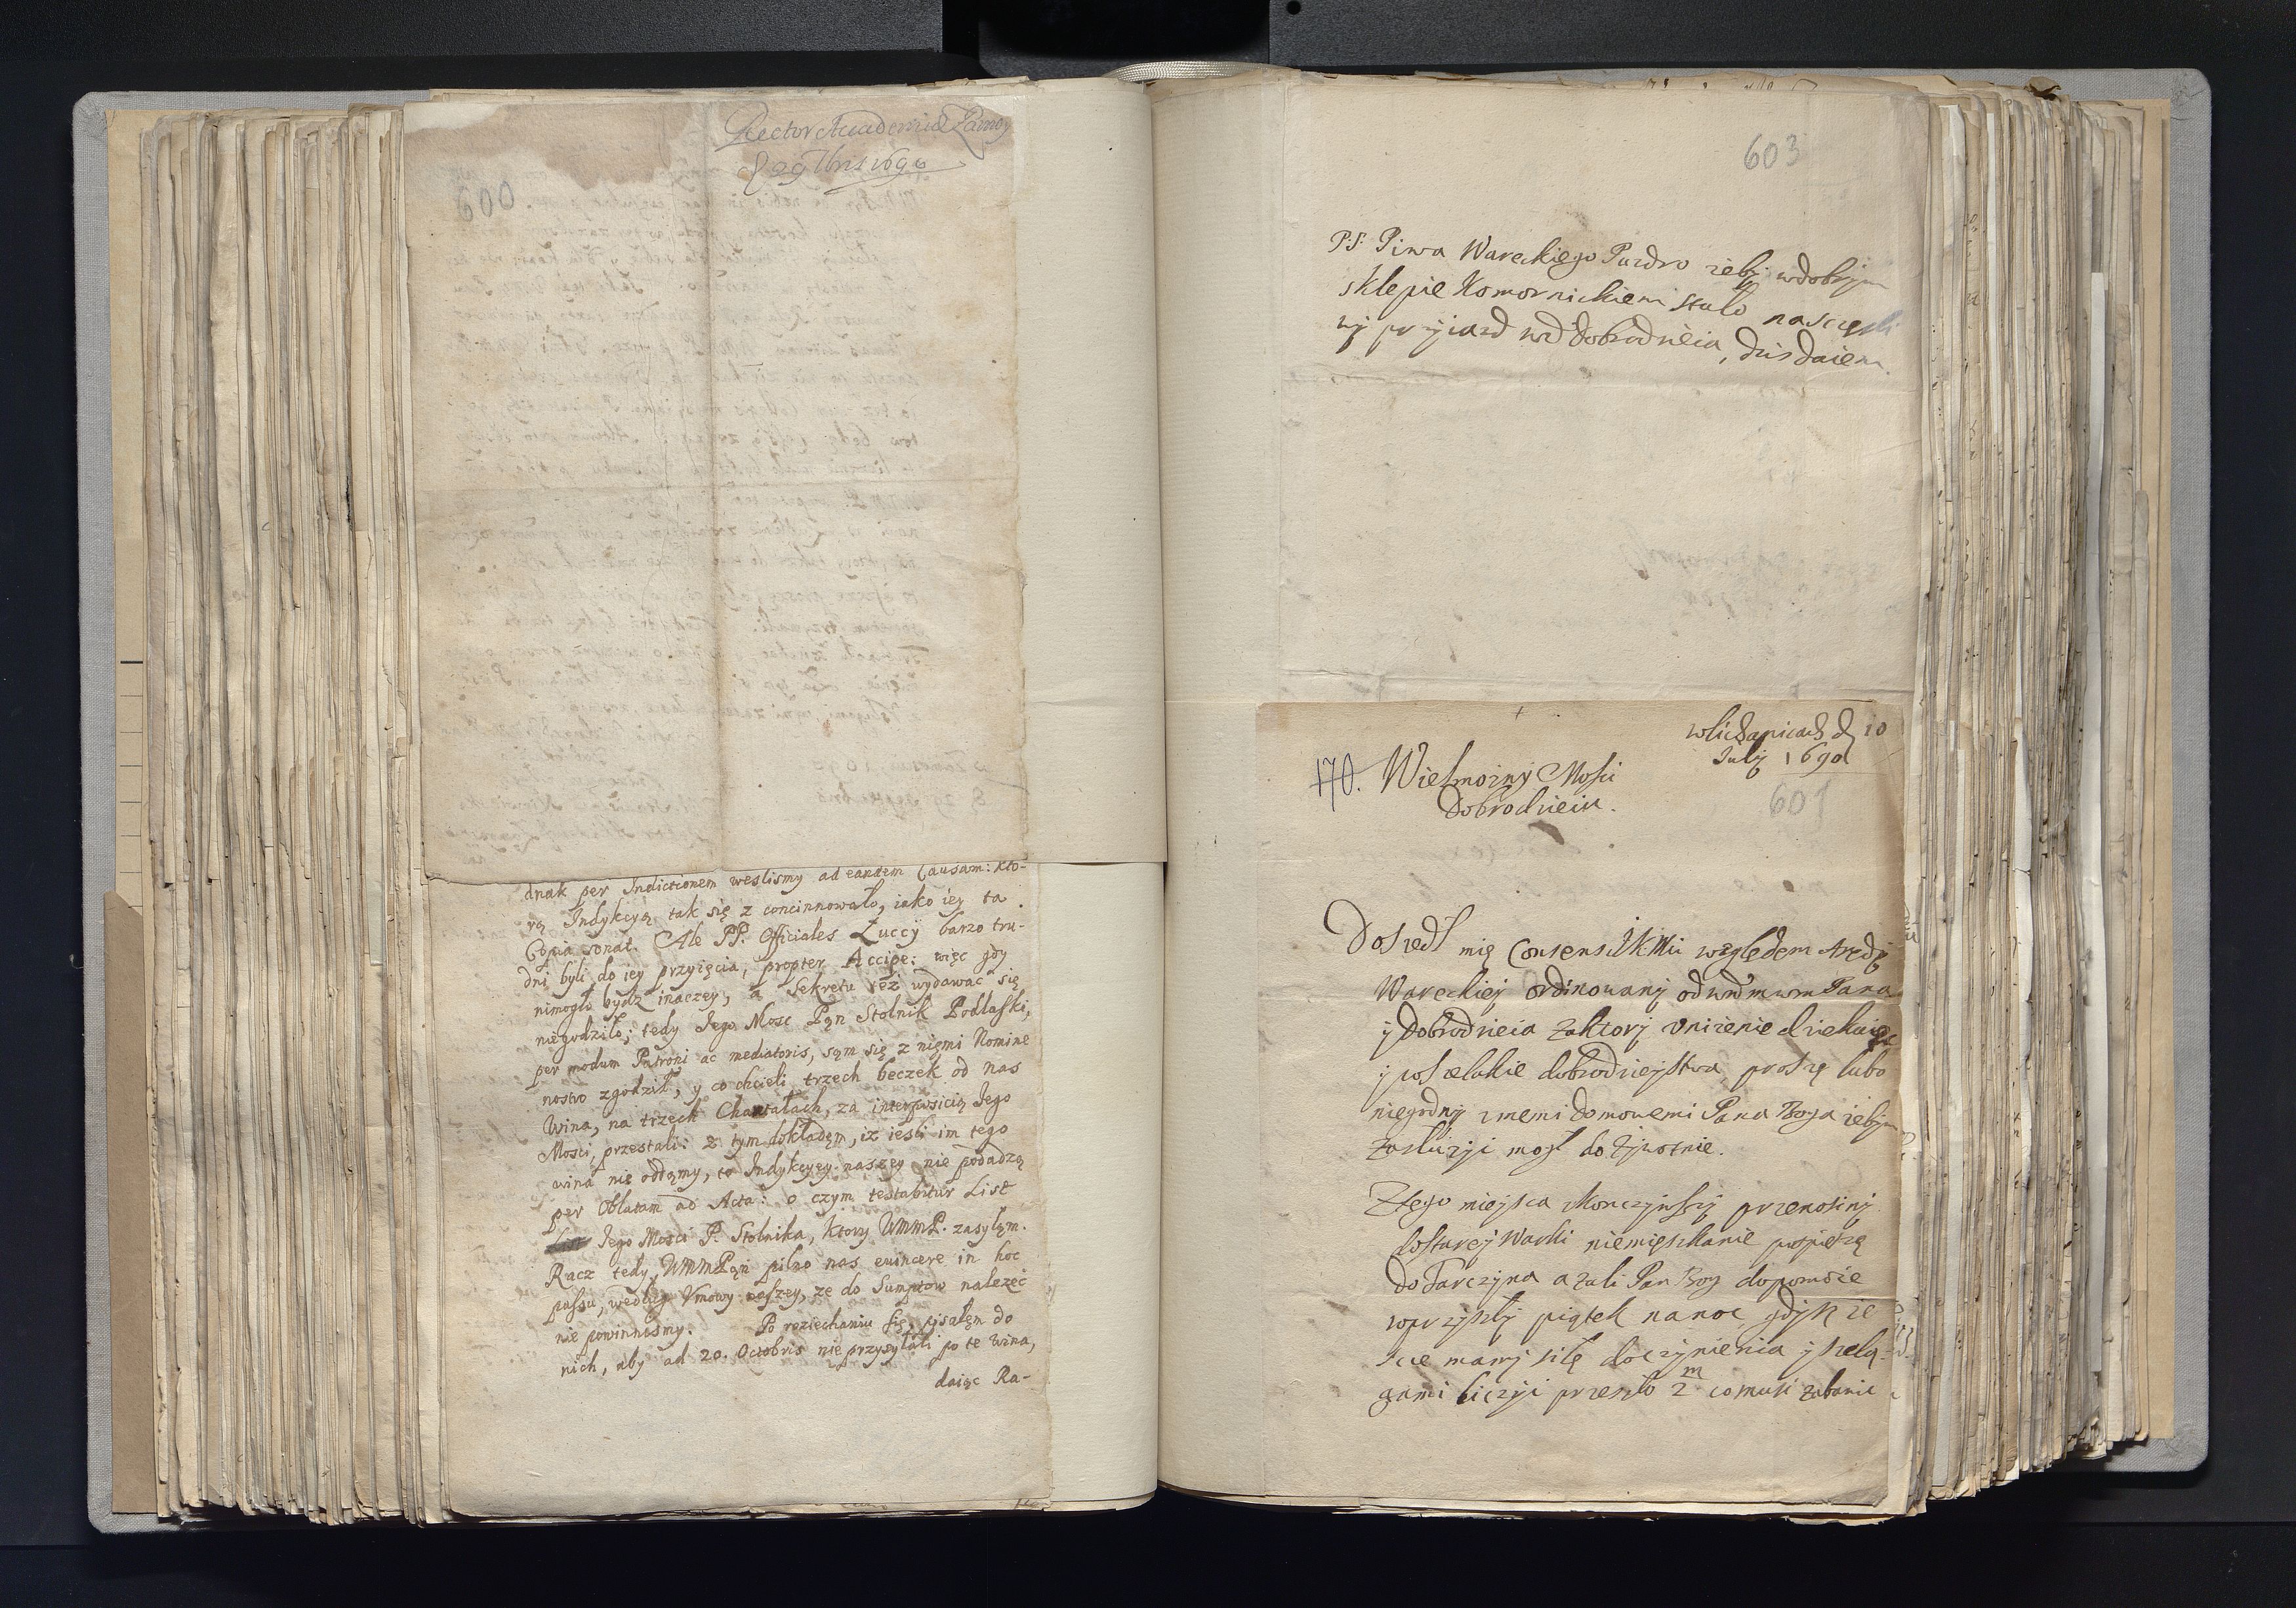 Rector Academiæ Zamoy
29 7bris 1690
600
dnak per Indictionem weslismy ad eandem Causam: kto-
rą Indykcyą tak się z concinnowało, iako iey ta
Copia sonat. Ale PP. Officiales Łuccÿ barzo tru-
dni byli do iey przyięcia, propter Accipe: więc gdy
nimogło bydz inaczey, a Sekretu też wydawać się
niegodziło; tedy Jego Mosc Pąn Stolnik Podlaski,
per modum Patroni ac mediatoris, sąm się z niemi Nomine
nostro zgodził, y co chcieli trzech beczek od nas
Wina, na trzech Chantałach, za interpositią Jego
Mosci, przestali: z tym dokłądęm, iz iesli im tego
wina nie oddąmy, to Indykcyey naszey nie podadzą
per Oblatam ad Acta: o czym testabitur List
Jego Mosci P. Stolnika, ktory WMMP. zasyłąm.
Racz tedy WMMPąn pilno nas euincere in hoc
passu, według Vmowy naszey, ze do Sumptow nalezeć
nie powinnismy. Po roziechaniu się, pisałęm do
nich, aby ad 20. Octobris nie przysyłali po te wina,
daiąc Ra-
603
PS. Piwa Wareckiego Puzdro zeby wdobrym
sklepie Komornickiem stało nasczęsli
wy przyiazd wd Dobrodzieia, dzis daiem.
wlichanicach d 10
July 1690
170. Wielmozny Mosci
Dobrodzieiu.
601
Doszedł mię Consens JKMci względem Arędy
Wareckiey ordinowany od wmmwm Pana
y Dobrodzieia za ktory vnizenie dziekuięc
y wszelakie dobrodzieystwa, proszę lubo
niegodny zmemi domowemi Pana Boga zebym
zasłuzyc mogł do zywotnie.
Ztego mieysca skonczywszy przenosiny
do starey Warki niemięszkanie pospieszę
do Tarczyna a zali Pan Bog dopomoze
wprzyszły piątek na noc, gdysz ie
scze mamy siłę doczynienia y szelą-
gami liczyc przeszło 2 m co musi zabawic